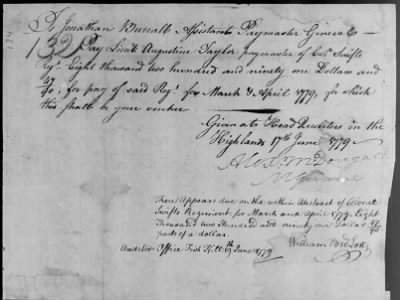 To Jonathan Burrall Assistant Paymaster General
132 Pay Lieut Augustine Taylor paymaster of Colo Swifts
Regt Eight thousand two hundred and ninety one Dollars and
for pay of said Regt for March & April 1779, for which
this shall be your voucher
Given at Head Quarters in the
Highlands 17th June 1779
Alexr McDougall
M General
There Appears due on the within Abstract of Colonel
Swifts Regiment for March and April 1779 Eight
thousand two Hundred and ninety one Dollars
parts of a dollar.
Auditors Office Fish Kill 19th June 1779
William